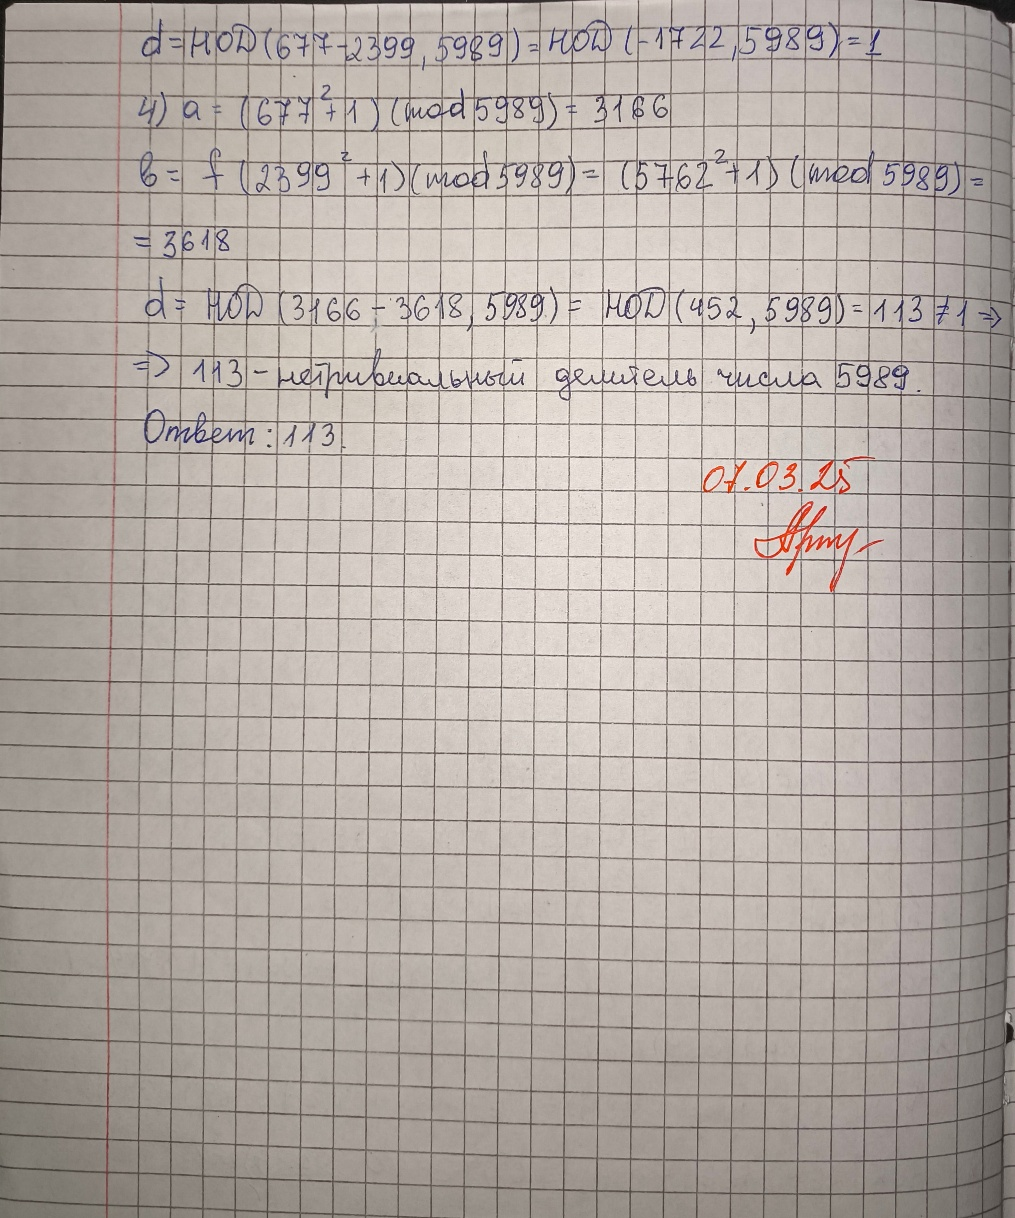 d=НОД(677-2399, 5989)=НОД(-1722, 5989)=1
4) a = (677²+1)(mod 5989)=3166
в= f (2399²+1)(mod 5989)= (5762²+1)(mod 5989)=
=3618
d= НОД(3166-3618, 5989)= НОД(452, 5989)=113≠1⇒
⇒ 113-нетривиальный делитель числа 5989.
Ответ: 113.
07.03.25